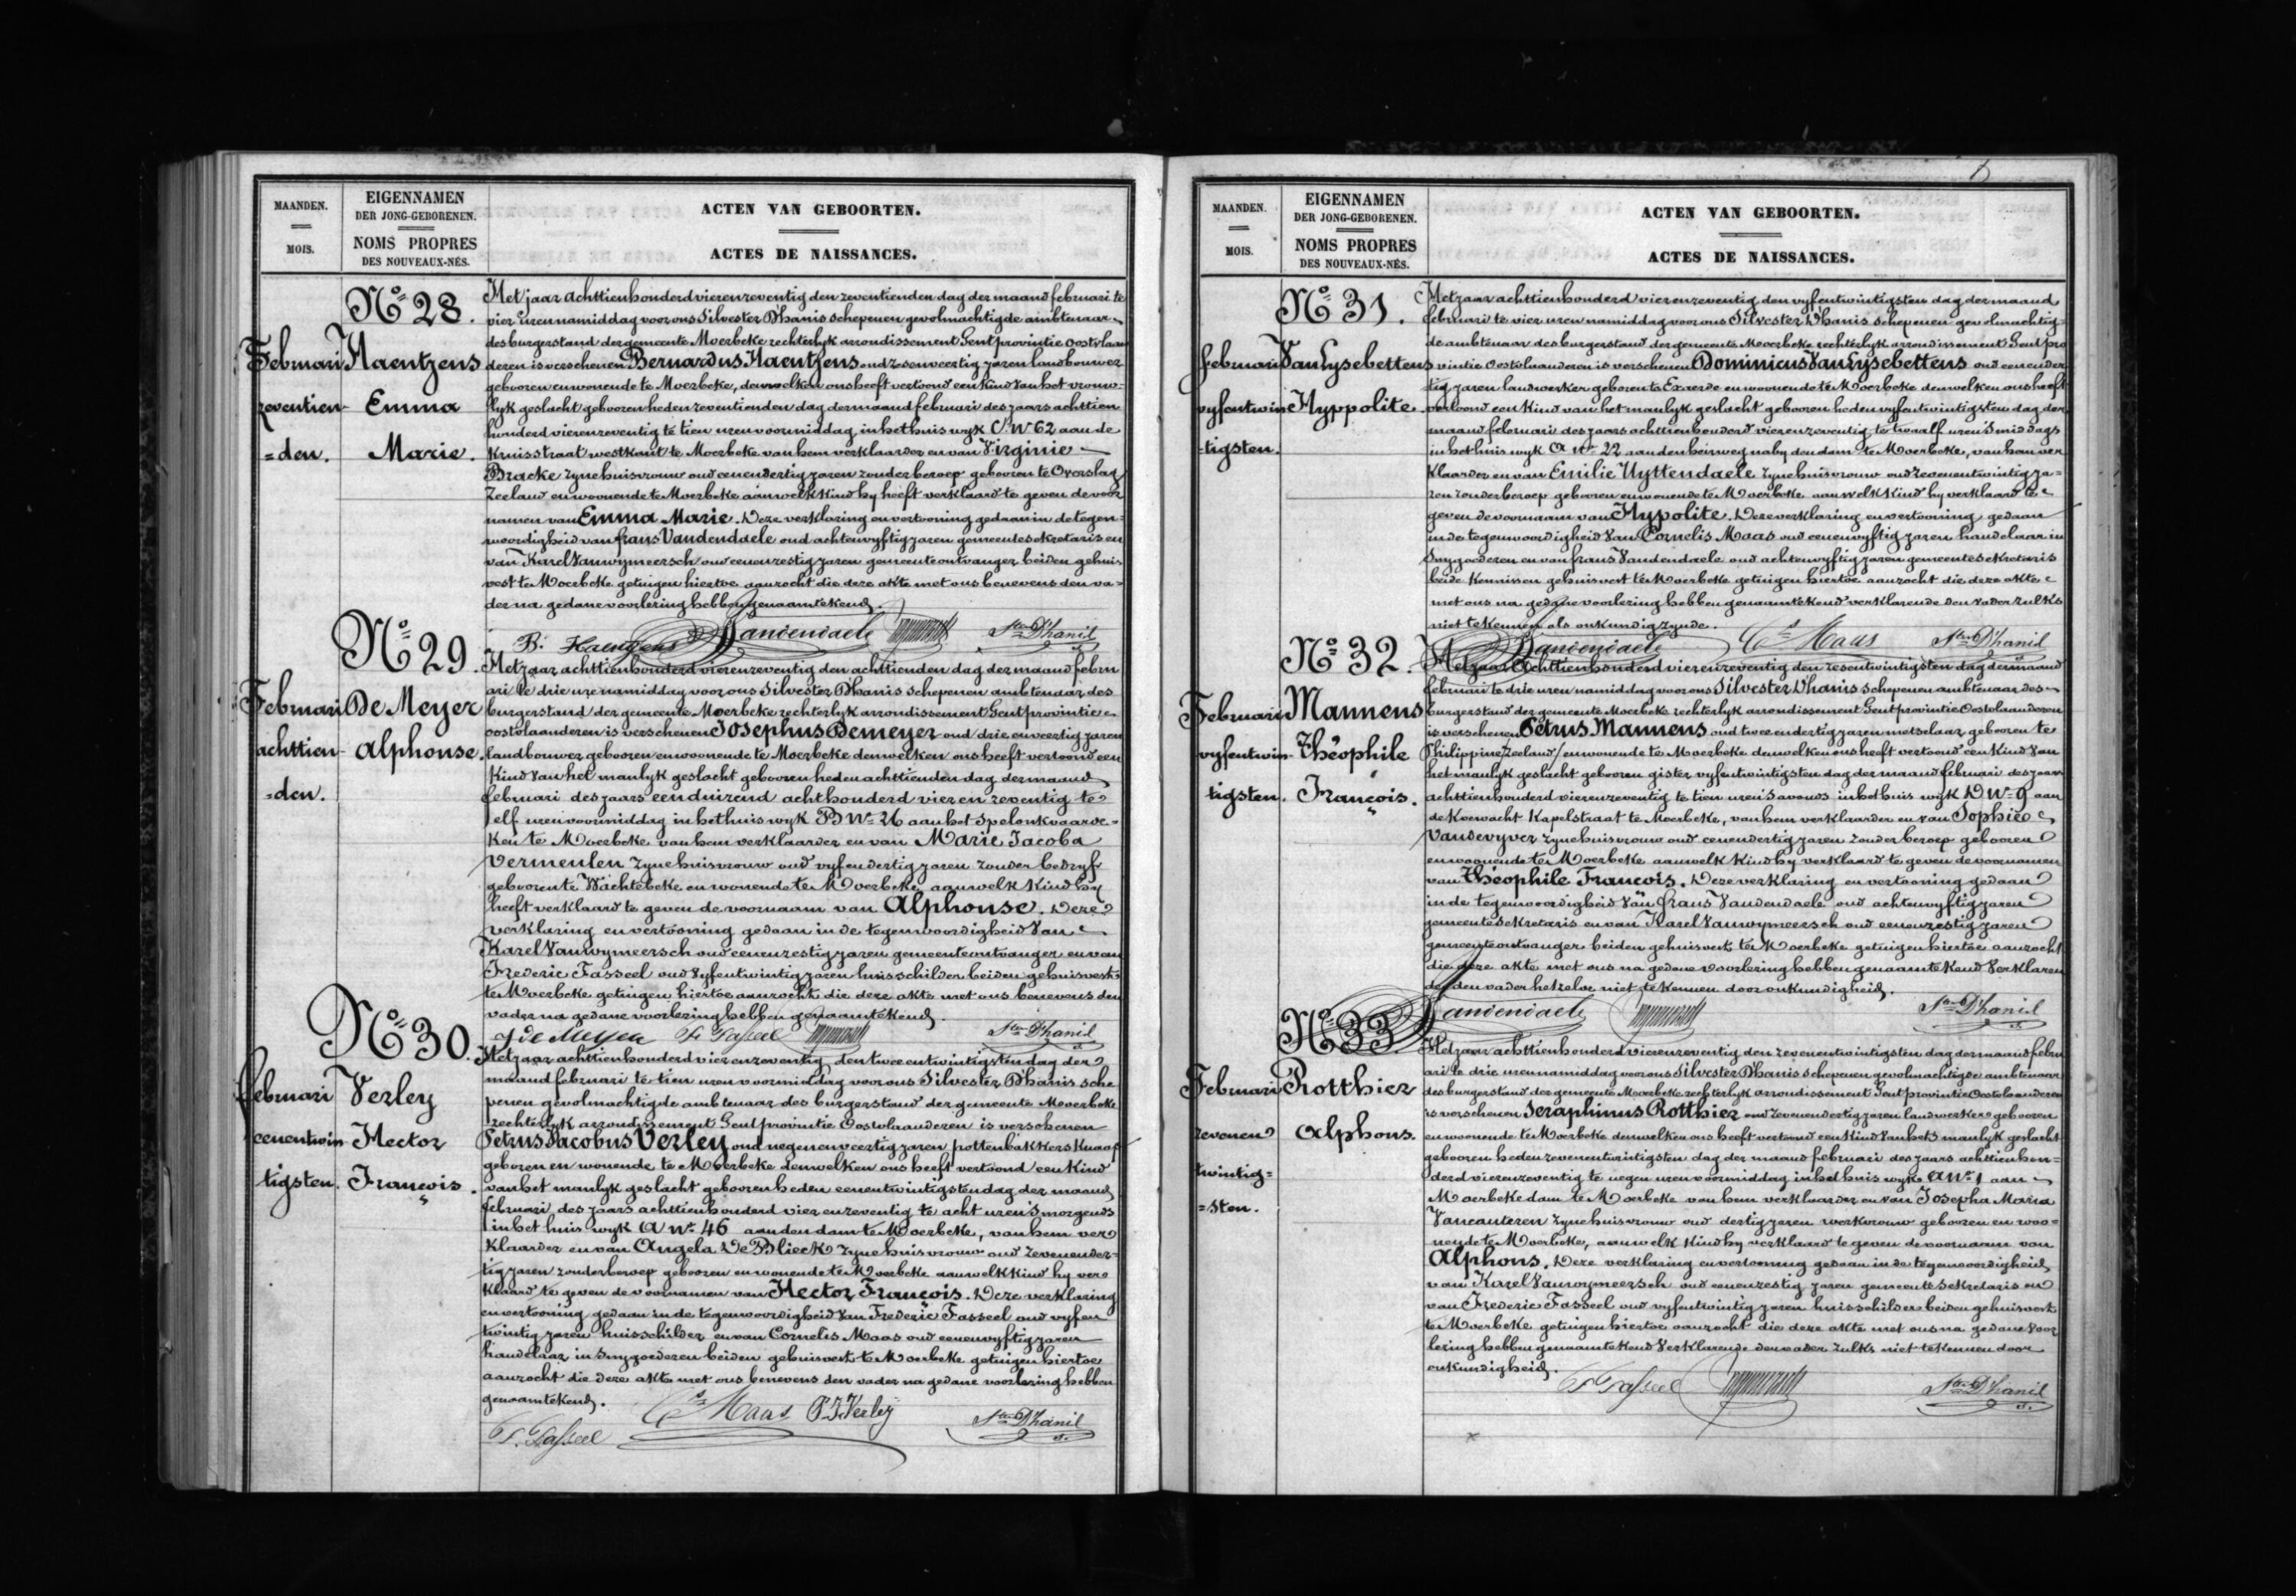 MAANDEN.
MOIS.
EIGENNAMEN
DER JONG-GEBORENEN.
NOMS PROPRES
DES NOUVEAUX-NÉS.
ACTEN VAN GEBOORTEN.
ACTES DE NAISSANCES.
Nº 28.
Februari
zeventien-
=den.
Haentjens
Emma
Marie.
Het jaar achttienhonderd vierenzeventig den zeventienden dag der maand februari te
vier uren namiddag voor ons Silvester D'hanis schepenen gevolmachtigde ambtenaar
des burgerstand der gemeente Moerbeke rechterlyk arrondissement Gent provintie oostvlaan
deren is verschenen Bernardus Haentjens oud zesenveertig jaren landbouwer
gebooren en wonende te Moerbeke, denwelken ons heeft vertoond een kind van het vrouw-
lyk geslacht gebooren heden zeventienden dag der maand februari des jaars achttien
honderd vierenzeventig te tien uren voormiddag in het huis wyk C Nº 62 aan de
Kruisstraat westkant te Moerbeke van hem verklaarder en van Virginie
Bracke zyne huisvrouw oud eenendertig jaren zonder beroep gebooren te Overslag
Zeeland en woonende te Moerbeke aan welk kind hy heeft verklaard te geven de voor
namen van Emma Marie. Deze verklaring en vertooning gedaan in de tegen-
woordigheid van frans Vandendaele oud achtenvyftig jaren gemeentesekretaris en
van Karel Vanwymeersch oud eenenzestig jaren gemeenteontvanger beiden gehuis-
vest te Moerbeke getuigen hiertoe aanzocht die deze akte met ons benevens den va-
der na gedane voorlezing hebben genaamtekend.
B. Haentjens Vandendaele Ster D'hanis
Nº 29.
Februari
achttien-
=den.
De Meyer
Alphonse.
Het jaar achttienhonderd vierenzeventig den achttienden dag der maand febru
ari te drie ure namiddag voor ons Silvester D'hanis schepenen ambtenaar des
burgerstand der gemeente Moerbeke rechterlyk arrondissement Gent provintie
oostvlaanderen is verschenen Josephus Demeyer oud drie en veertig jaren
landbouwer gebooren en woonende te Moerbeke denwelken ons heeft vertoond een
kind van het manlyk geslacht gebooren heden achttienden dag der maand
februari des jaars eenduizend achthonderd vier en zeventig te
elf uren voormiddag in het huis wyk B Nº 26 aan het Spelonkvaarde-
ken te Moerbeke van hem verklaarder en van Marie Jacoba
Vermeulen zyne huisvrouw oud vyfendertig jaren zonder bedryf
gebooren te Wachtebeke en wonende te Moerbeke aan welk kind hy
heeft verklaard te geven de voornaam van Alphonse. Deze
verklaring en vertooning gedaan in de tegenwoordigheid van
Karel Vanwymeersch oud eenenzestig jaren gemeenteontvanger en van
Frederic Fasseel oud vyfentwintig jaren huisschilder beiden gehuisvest
te Moerbeke getuigen hiertoe aanzocht die deze akte met ons benevens den
vader na gedane voorlezing hebben genaamtekend.
J de Meyer F. Fasseel Ster D'hanis
Nº 30.
februari
eenentwin-
tigsten.
Verley
Hector
François.
Het jaar achttienhonderd vier enzeventig den twee entwintigsten dag der
maand februari te tien uren voormiddag voor ons Silvester D'hanis sche
penen gevolmachtigde ambtenaar des burgerstand der gemeente Moerbeke
rechterlyk arrondissement Gent provintie Oostvlaanderen is verschenen
Petrus Jacobus Verley oud negenenveertig jaren pottenbakkers knaap
geboren en wonende te Moerbeke denwelken ons heeft vertoond een kind
van het manlyk geslacht gebooren heden eenentwintigsten dag der maand
februari des jaars achttienhonderd vier enzeventig te acht uren 's morgends
in het huis wyk A Nº 46 aan den dam te Moerbeke, van hem ver
klaarder en van Angela De Blieck zyne huisvrouw oud zevenender-
tig jaren zonder beroep gebooren en wonende te Moerbeke aan welk kind hy ver
klaard te geven de voornamen van Hector François. Deze verklaring
en vertooning gedaan in de tegenwoordigheid van Frederic Fasseel oud vyfen
twintig jaren huisschilder en van Cornelis Maas oud eenenvyftig jaren
handelaar in snygoederen beiden gehuisvest te Moerbeke getuigen hiertoe
aanzocht die deze akte met ons benevens den vader na gedane voorlezing hebben
genaamtekend.
Cs Maas P. J. Verley Ster D'hanis
F. Fasseel
MAANDEN.
MOIS.
EIGENNAMEN
DER JONG-GEBORENEN.
NOMS PROPRES
DES NOUVEAUX-NÉS.
ACTEN VAN GEBOORTEN.
ACTES DE NAISSANCES.
Nº 31.
februari
vyfentwin
-tigsten.
Van Lysebettens
Hyppolite.
Het jaar achttienhonderd vierenzeventig den vyfentwintigsten dag der maand
februari te vier uren namiddag voor ons Silvester D'hanis schepenen gevolmachtig-
de ambtenaar des burgerstand der gemeente Moerbeke rechterlyk arrondissement Gent pro
vintie Oostvlaanderen is verschenen Dominicus Van Lysebettens oud eenender
tig jaren landwerker geboren te Exaerde en wonende te Moerbeke denwelken ons heeft
vertoond een kind van het manlyk geslacht gebooren heden vyfentwintigsten dag der
maand februari des jaars achttienhonderd vierenzeventig te twaalf uren 's middags
in het huis wyk A Nº 22 aan den heirweg naby den dam te Moerbeke, van hem ver
klaarder en van Emilie Uyttendaele zyne huisvrouw oud zevenentwintig ja-
ren zonder beroep gebooren en wonende te Moerbeke aan welk kind hy verklaard te
geven de voornaam van Hypolite. Deze verklaring en vertooning gedaan
in de tegenwoordigheid van Cornelis Maas oud eenenvyftig jaren handelaar in
snygoederen en van frans Vandendaele oud achtenvyftig jaren gemeentesekretaris
beide kennissen gehuisvest te Moerbeke getuigen hiertoe aanzocht die deze akte
met ons na gedane voorlezing hebben genaamtekend verklarende den vader zulks
niet te kennen als onkundig zynde.
Vandendaele Cs Maas Ster D'hanis
Nº 32.
Februari
vyfentwin-
tigsten.
Mannens
Théophile
François.
Het jaar achttienhonderd vierenzeventig den zesentwintigsten dag der maand
februari te drie uren namiddag voor ons Silvester D'hanis schepenen ambtenaar des
burgerstand der gemeente Moerbeke rechterlyk arrondissement Gent provintie Oostvlaanderen
is verschenen Petrus Mannens oud twee endertig jaren metselaar gebooren te
Philippine /Zeeland/ en wonende te Moerbeke denwelken ons heeft vertoond een kind van
het manlyk geslacht gebooren gister vyfentwintigsten dag der maand februari des jaars
achttienhonderd vierenzeventig te tien uren 's avonds in het huis wyk D Nº 9 aan
de Koewacht Kapelstraat te Moerbeke, van hem verklaarder en van Sophie
Vandevyver zyne huisvrouw oud eenendertig jaren zonder beroep gebooren
en woonende te Moerbeke aan welk kind hy verklaard te geven de voornamen
van Théophile François. Deze verklaring en vertooning gedaan
in de tegenwoordigheid van frans Vandendaele oud achtenvyftig jaren
gemeentesekretaris en van Karel Vanwymeersch oud eenenzestig jaren
gemeenteontvanger beiden gehuisvest te Moerbeke getuigen hiertoe aanzocht
die deze akte met ons na gedane voorlezing hebben genaamtekend verklaren
de den vader hetzelve niet te kennen door onkundigheid.
Vandendaele Ster D'hanis
Nº 33
Februari
zevenen
twintig=
=sten.
Rotthier
Alphons.
Het jaar achttienhonderd vierenzeventig den zevenentwintigsten dag der maand febru
ari te drie uren namiddag voor ons Silvester D'hanis schepenen gevolmachtigde ambtenaar
des burgerstand der gemeente Moerbeke rechterlyk arrondissement Gent provintie Oostvlaanderen
is verschenen Seraphinus Rotthier oud zevenendertig jaren landwerker gebooren
en woonende te Moerbeke denwelken ons heeft vertoond een kind van het manlyk geslacht
gebooren heden zevenentwintigsten dag der maand februari des jaars achttienhon-
derd vierenzeventig te negen uren voormiddag in het huis wyk A Nº 1 aan
Moerbekedam te Moerbeke van hem verklaarder en van Josepha Maria
Vancauteren zyne huisvrouw oud dertig jaren werkvrouw gebooren en woo-
nende te Moerbeke, aan welk kind hy verklaard te geven de voornaam van
Alphons. Deze verklaring en vertooning gedaan in de tegenwoordigheid
van Karel Vanwymeersch oud eenenzestig jaren gemeente sekretaris en
van Frederic Fasseel oud vyfentwintig jaren huisschilder beiden gehuisvest
te Moerbeke getuigen hiertoe aanzocht die deze akte met ons na gedane voor
lezing hebben genaamtekend verklarende den vader zulks niet te kennen door
onkundigheid.
F. Fasseel Ster D'hanis